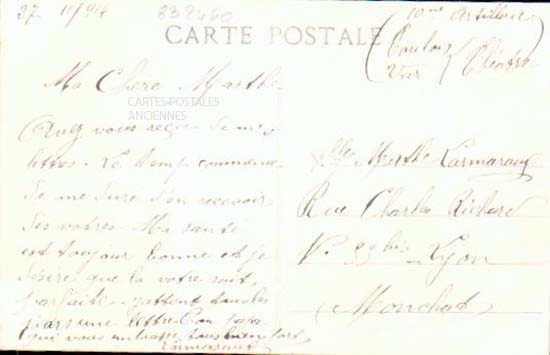 27 11/94
832460
10me Artillerie
CARTE POSTALE
Toulon
Var
Ma Chère Marthe
CARTES-POSTALES
ANCIENNES
Avez vous reçu de mes
lettres. Le temps commence
de me dure d'en recevoir
des votres. Ma santé
est toujour bonne et je
désire que la votre soit
parfaite. j'attend tous les
jours une lettre. Ton papa
qui vous embrasse tous bien fort
Mlle Marthe
Rue Charles Richard
N° 33 bis Lyon
Monchat